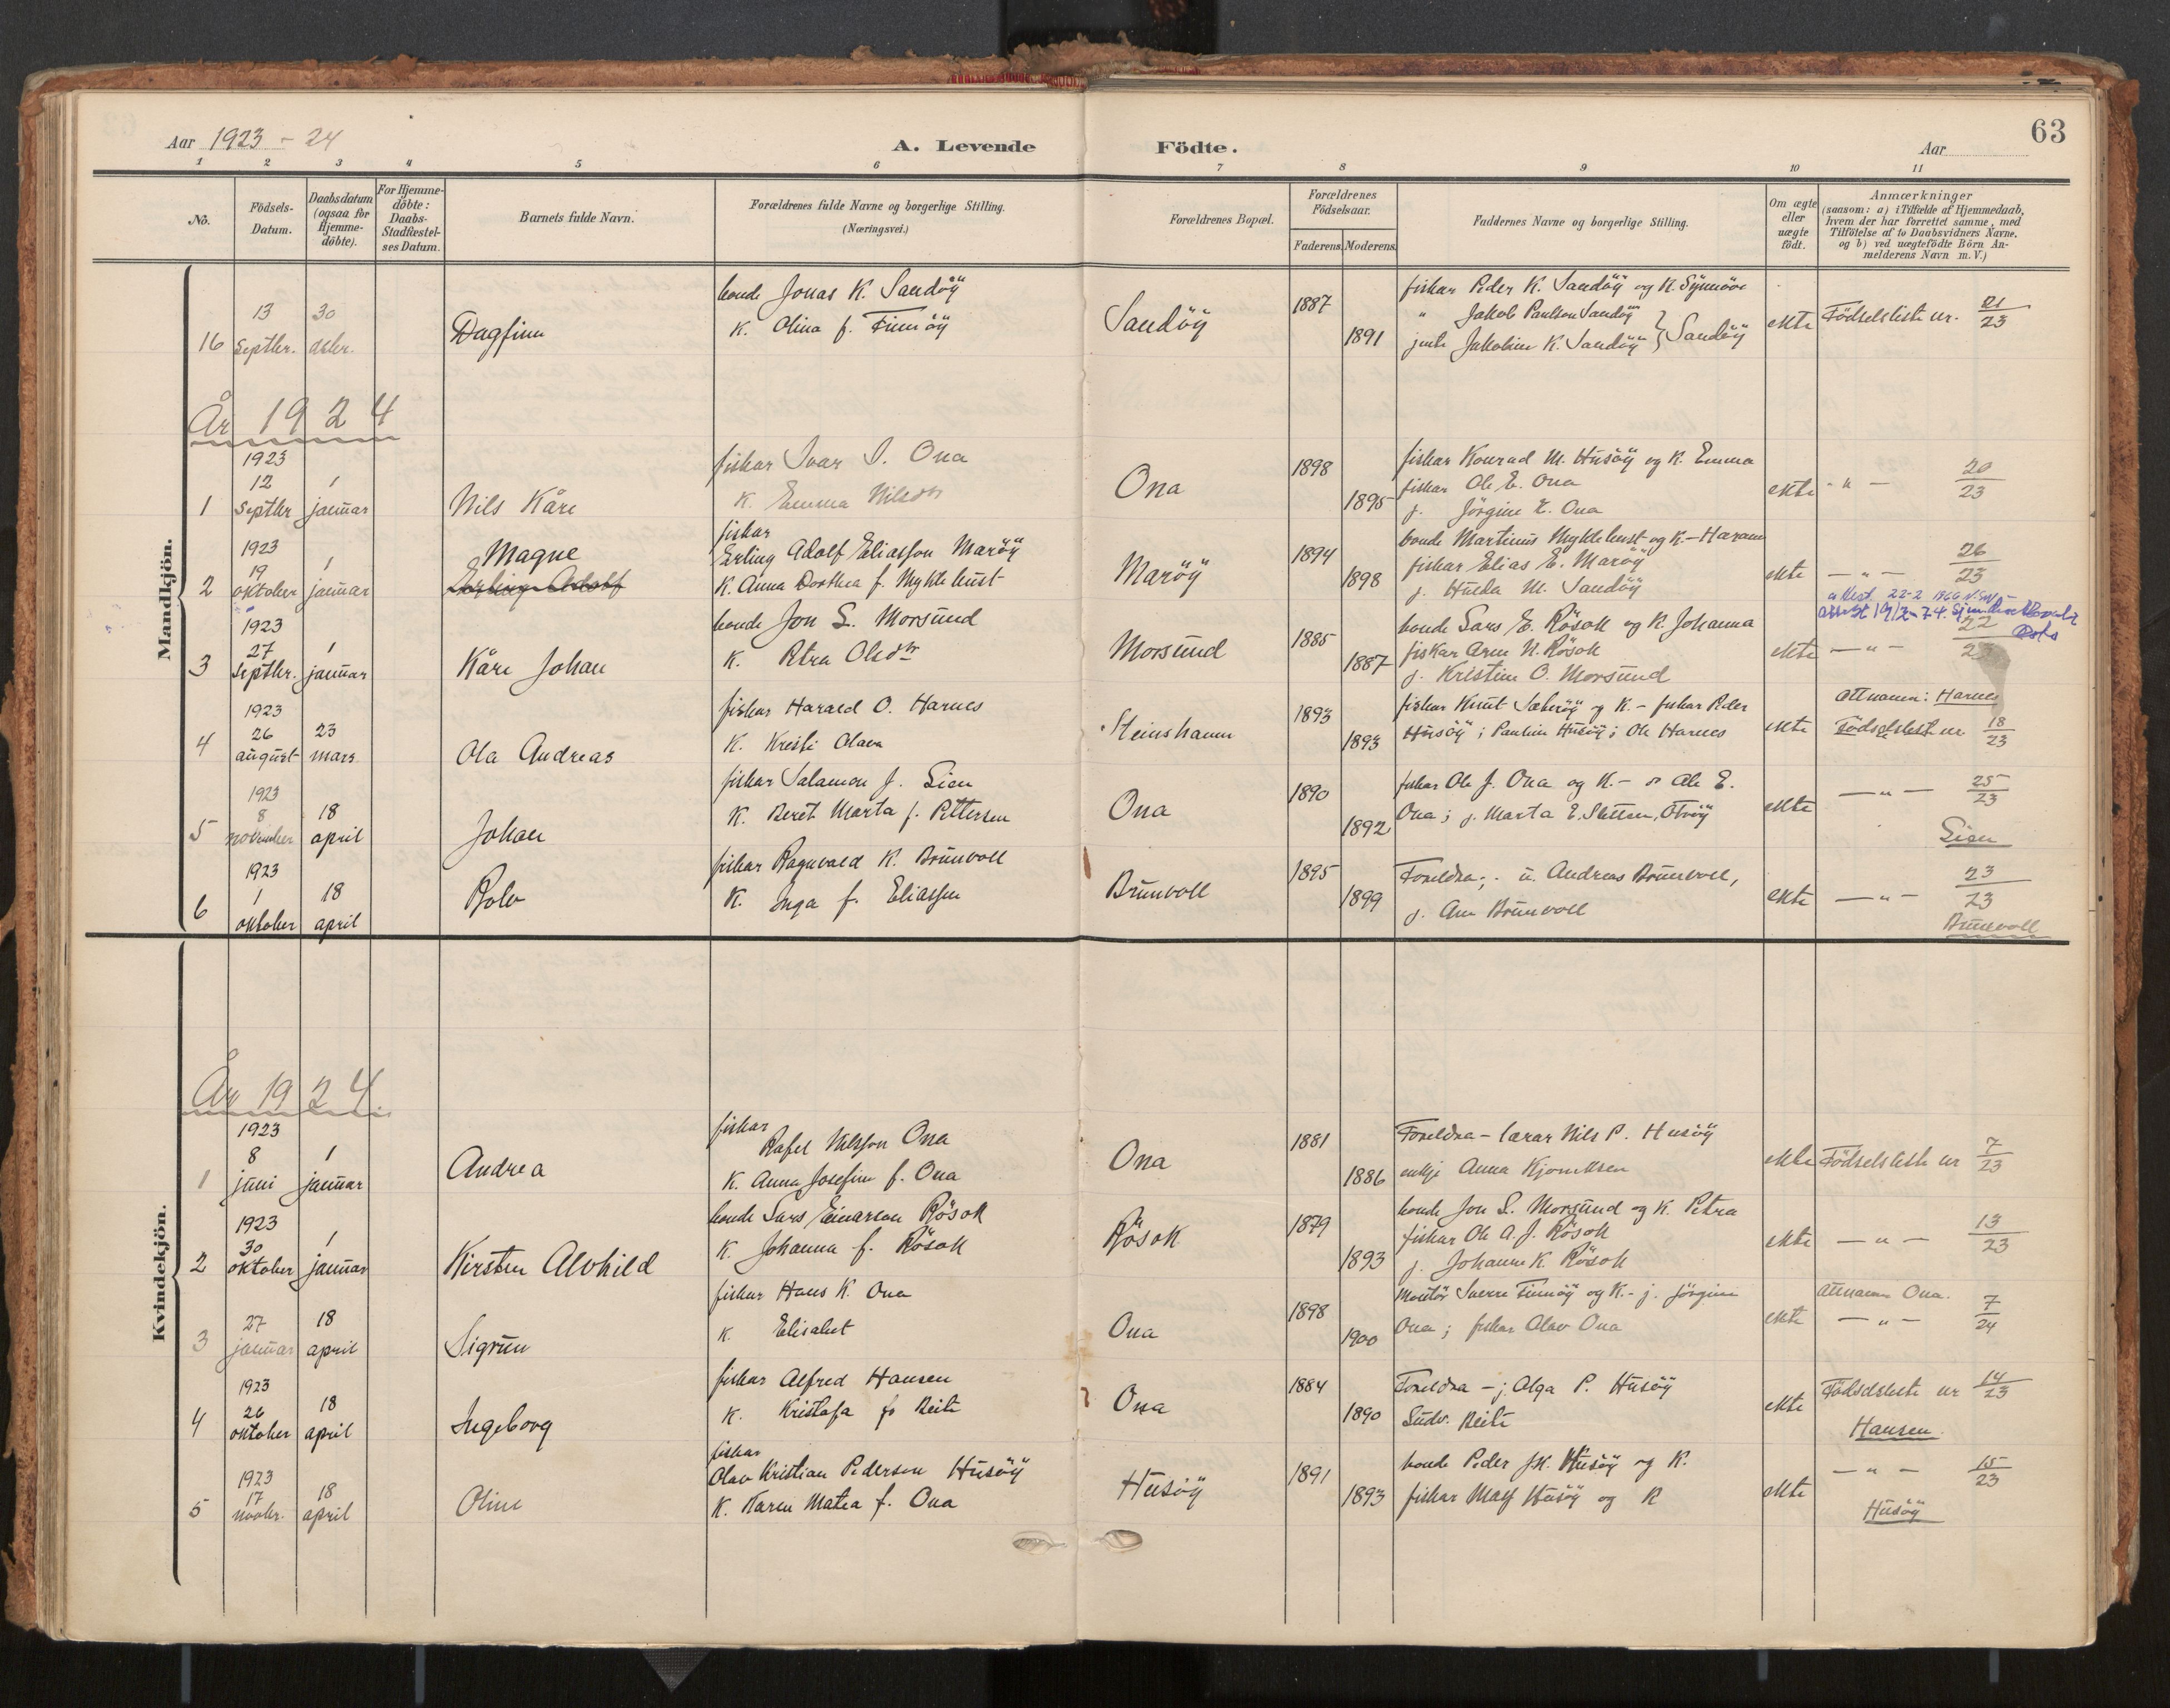 63
Aar 1923 - 24
A. Levende Födte.
Aar
1 2 3 4 5 6 7 8 9 10 11
No.
Födsels-Datum.
Daabsdatum (ogsaa for Hjemme-döbte).
For Hjemme-döbte: Daabs-Stadfæstel-ses Datum.
Barnets fulde Navn.
Forældrenes fulde Navne og borgerlige Stilling.
(Næringsvei.)
Forældrenes Bopæl.
Forældrenes Födselsaar.
Faderens. Moderens.
Faddernes Navne og borgerlige Stilling.
Om ægte eller uægte födt.
Anmærkninger
(saasom: a) i Tilfælde af Hjemmedaab,
hvem der har forrettet samme, med
Tilföielse af to Daabsvidners Navne.
og b) ved uægtefödte Börn An-
melderens Navn m. V.)
Mandkjön.
16 13 Septbr. 30 desbr.
Dagfinn
bonde Jonas K. Sandöÿ
K. Olina f. Finnöÿ
Sandöÿ
1887
1891
fiskar Peder K. Sandöÿ og K. Synnöve
" Jakob Paulson Sandöÿ
jente Jakobine K. Sandöÿ } Sandöÿ
ekte
Födselsliste nr. 21/23
År 1924
1 1923 12 Septbr 1 januar
Nils Kåre
fiskar Ivar I. Ona
K. Emma Nilsdtr
Ona
1898
1895
fiskar Konrad M. Husöÿ og K. Emma
fiskar Ole E. Ona
j. Jörgine E. Ona
ekte
- " - 20/23
2 1923 19 oktober 1 januar
Magne
Erling Adolf
fiskar
Erling Adolf Eliasson Maröÿ
K. Anna Dorthea f. Myklebust
Maröÿ
1894
1898
bonde Martinus Myklebust og K. - Haram
fiskar Elias E. Maröÿ
j. Hulda M. Sandöÿ
ekte
- " - 26/23
3 1923 27 Septbr. 1 januar
Kåre Johan
bonde Jon L. Morsund
K. Petra Olsdtr
Morsund
1885
1887
bonde Lars E. Rösok og K. Johanna
fiskar Arne N. Rösok
j. Kristine O. Morsund
ekte
- " - 22/23
4 1923 26 august 23 mars
Ola Andreas
fiskar Harald O. Harnes
K. Kristi Olava
Steinshamn
1893
1893
fiskar Knut Sæteröÿ og K. - fiskar Peder
Husöÿ; Pauline Husöÿ; Ole Harnes
ekte
Attnamn: Harnes
Födselsliste nr 18/23
5 1923 8 november 18 april
Johan
fiskar Salamon J. Lien
K. Beret Marta f. Pettersen
Ona
1890
1892
fiskar Ole J. Ona og K. - Ole E.
Ona; j. Marta E. Sletten, Otröÿ
ekte
- " - 25/23
Lien
6 1923 1 oktober 18 april
Rolv
fiskar Ragnvald K. Brunvoll
K. Inga f. Eliassen
Brunvoll
1895
1899
Foreldra; u. Andreas Brunvoll,
j. Ane Brunvoll
ekte
- " - 23/23
Brunvoll
Kvindekjön.
År 1924.
1 1923 8 juni 1 januar
Andrea
fiskar
Rafel Nilsson Ona
K. Anna Josefine f. Ona
Ona
1881
1886
Foreldra - lærar Nils P. Husöÿ
enkje Anna Kjønniksen
ekte
Födselsliste nr 7/23
2 1923 30 oktober 1 januar
Kirsten Alvhild
bonde Lars Einarson Rösok
K. Johanna f. Rösok
Rösok
1879
1893
bonde Jon L. Morsund og K. Petra
fiskar Ole A. J. Rösok
j. Johanne K. Rösok
ekte
- " - 13/23
3 27 januar 18 april
Sigrun
fiskar Hans K. Ona
K. Elisabet
Ona
1898
1900
Montör Sverre Finnöÿ og K. - j. Jörgine
Ona; fiskar Olav Ona
ekte
Attnamn Ona.
- " - 7/24
4 1923 26 oktober 18 april
Ingeborg
fiskar Alfred Hansen
K. Kristofa f. Reite
Ona
1884
1890
Foreldra - j. Olga P. Husöÿ
Ludv. Reite
ekte
Födselsliste nr 14/23
Hansen
5 1923 17 novbr. 18 april
Oline
fiskar
Olav Kristian Pederson Husöÿ
K. Karen Matea f. Ona
Husöÿ
1891
1893
bonde Peder JK. Husöÿ og K.
fiskar Malf Husöÿ og K
ekte
- " - 15/23
Husöÿ